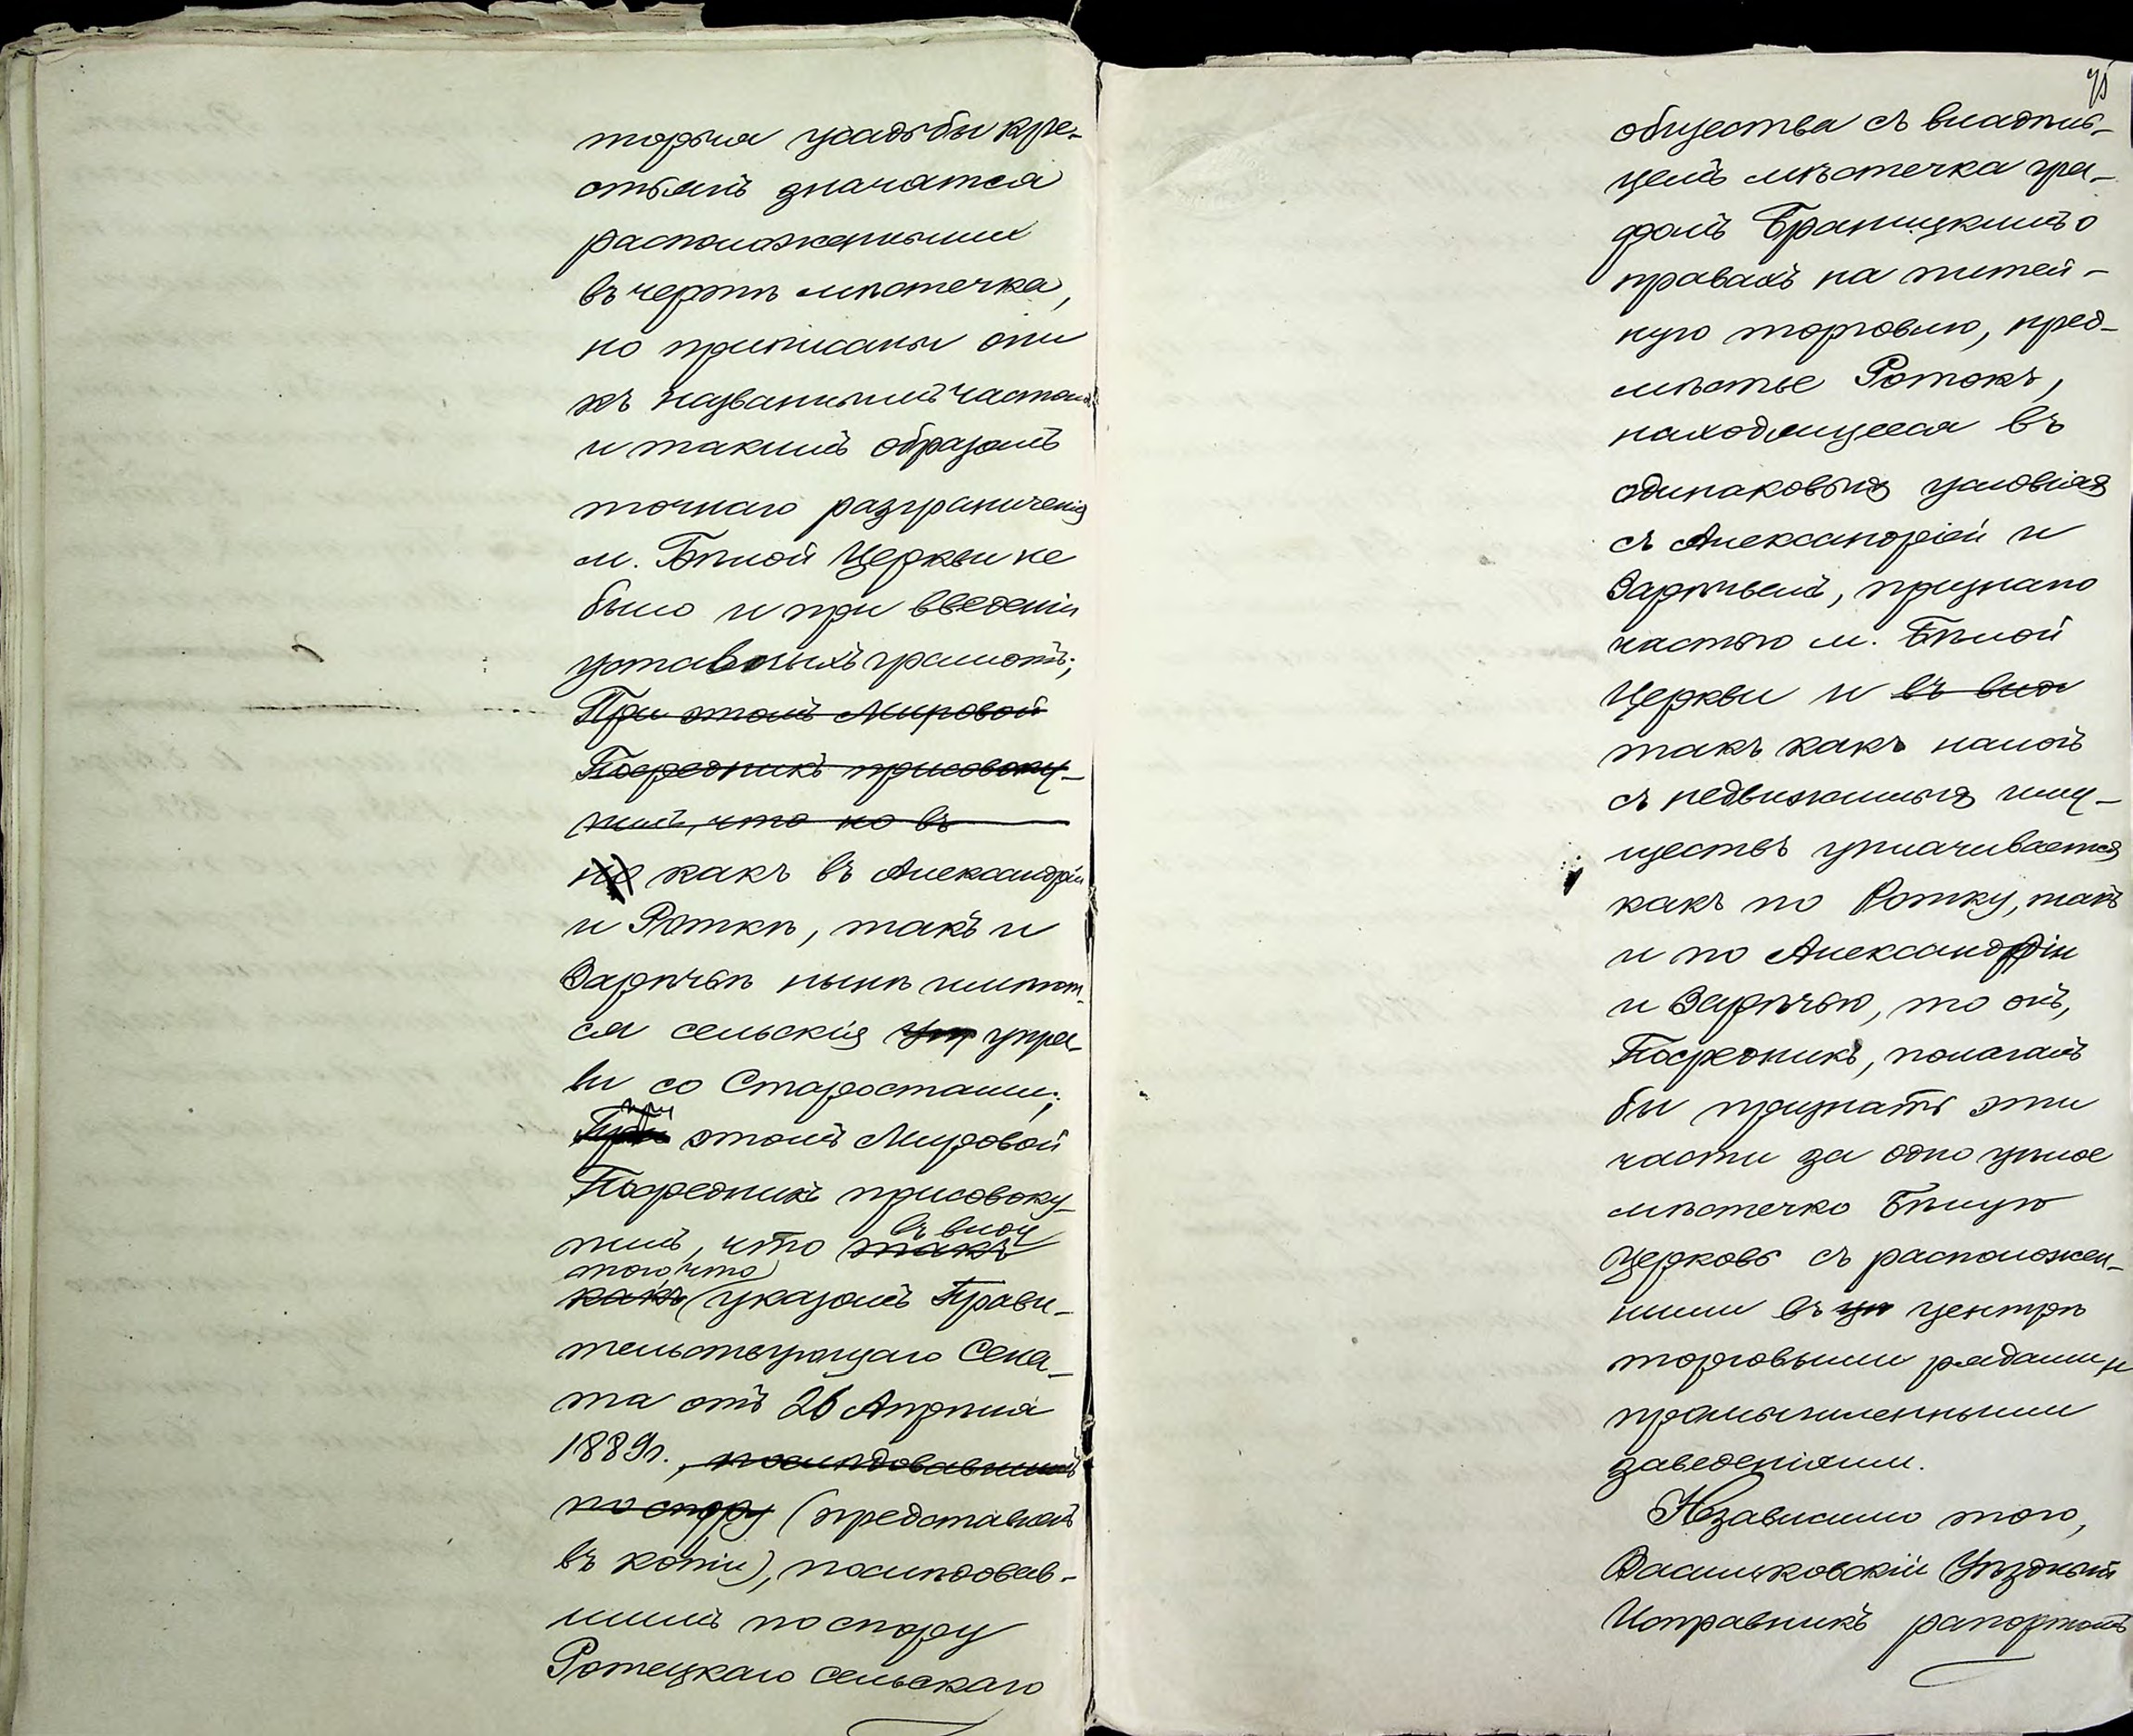 торыя усадьбы кре-
стьянъ значатся
расположенными
въ чертѣ мѣстечка,
но приписаны они
къ названнымъ частямъ
и такимъ образомъ
точнаго разграниченія
м. Бѣлой Церкви не
было и при введеніи
уставныхъ грамотъ;
При этомъ Мировой
Посредникъ присовоку-
пилъ, что но въ
но какъ въ Александріи
и Роткѣ, такъ и
Зарѣчьѣ нынѣ имѣют-
ся сельскія уп упра-
вы со Старостами;
при
При этомъ Мировой
Посредникъ присовоку-
въ виду
пилъ, что такъ
того, что
какъ указомъ Прави-
тельствующаго Сена-
та отъ 26 Апрѣля
1889г., послѣдовавшимъ
по спору (представленъ
въ копіи), послѣдовав-
шимъ по спору
Ротецкаго сельскаго
75
общества съ владѣль-
цемъ мѣстечка гра-
фомъ Браницкимъ о
правахъ на питей-
ную торговлю, пред-
мѣстье Ротокъ,
находящееся въ
одинаковыхъ условіяхъ
съ Александріей и
Зарѣчьемъ, признано
частью м. Бѣлой
Церкви и въ вид
такъ какъ налогъ
съ недвижимыхъ иму-
ществъ уплачивается
какъ по Ротку, такъ
и по Александріи
и Зарѣчью, то онъ,
Посредникъ, полагалъ
бы признать эти
части за одно цѣлое
мѣстечко Бѣлую
Церковь съ располoжен-
ными въ цѣ центрѣ
торговыми рядами и
промышленными
заведеніями.
Независимо того,
Васильковскій Уѣздный
Исправникъ рапортомъ